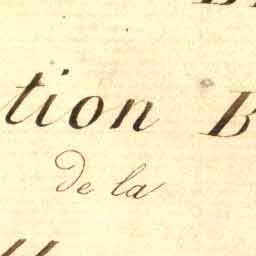 tion B
de la